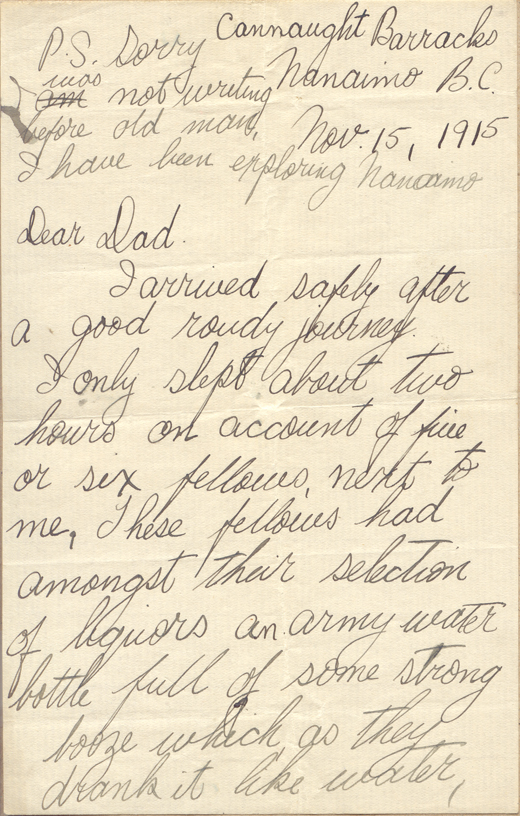 Cannaught Barracks
Nanaimo B.C.
Nov. 15, 1915
P.S. Sorry
I was not writing
before old man,
I have been exploring Nanaimo
Dear Dad.
I arrived safely after
a good roudy journey.
I only slept about two
hours on account of five
or six fellows, next to
me, These fellows had
amongst their selection
of liquors an army water
bottle full of some strong
booze which, as they
drank it like water,